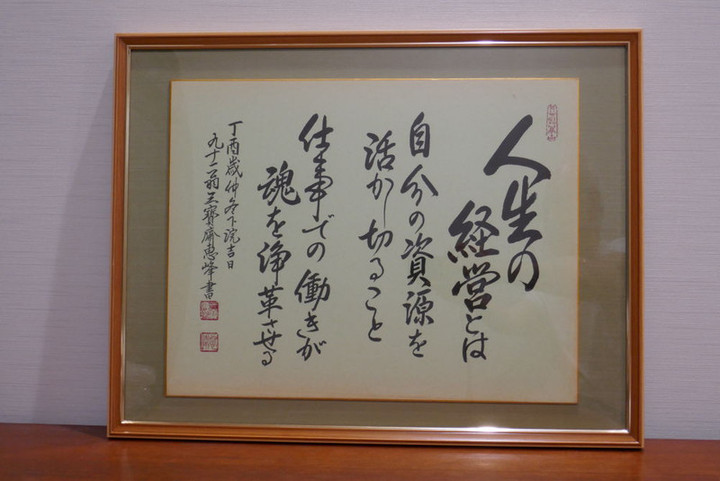 人生の
経営とは
自分の資源を
活かし切ること
仕事での働きが
魂を浄革させる
丁酉歳仲冬下浣吉日
九十二翁三寳齋恵峰書